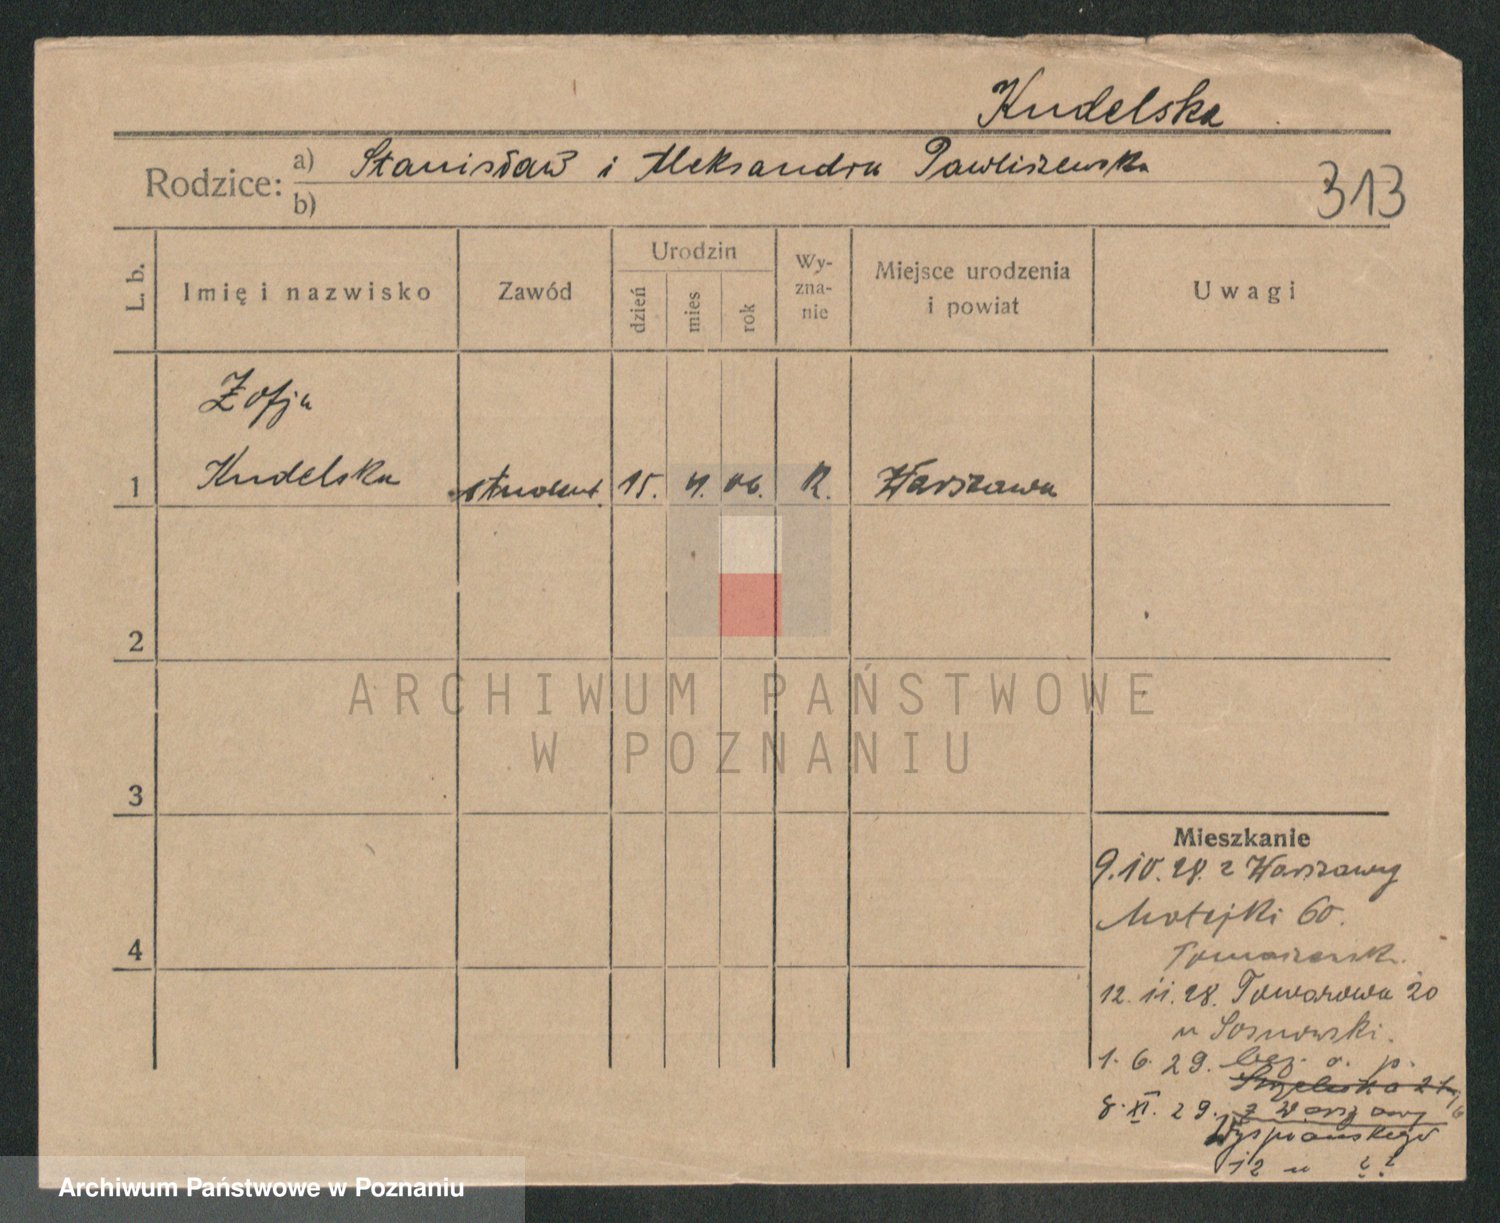 Kudelska
Rodzice: a) Stanisław i Aleksandra Pawliszewska
b)
313
L. b.
Imię i nazwisko
Zawód
Urodzin
dzień
mies
rok
Wy-
zna-
nie
Miejsce urodzenia
i powiat
Uwagi
Zofja
1 Kudelska student 15. 4. 06. R. Warszawa
2
3
4
ARCHIWUM PAŃSTWOWE
W POZNANIU
Mieszkanie
9.10.28. z Warszawy
Matejki 60.
12.11.28. Towarowa 20
u Sosnowski.
1.6.29. bez. a. p.
8.XI.29. z Warszawy
Wyspiańskiego
12 u ? ?
Archiwum Państwowe w Poznaniu